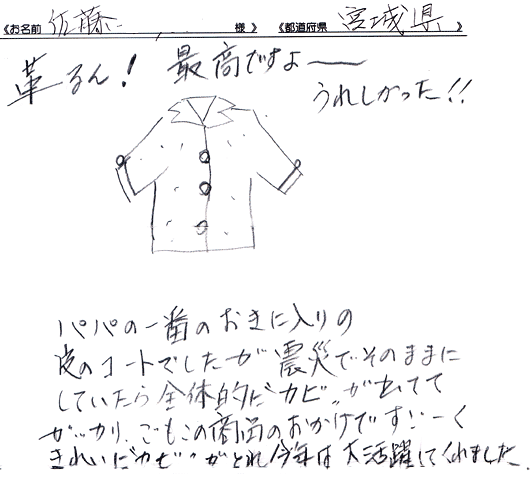 《お名前 佐藤 様》 《都道府県 宮城県 》
革るん! 最高ですよ〜
うれしかった!!
パパの一番のお気に入りの
皮のコートでしたが震災でそのままに
していたら全体的に"カビ"が出てて
がっかり、でもこの商品のおかげですごーく
きれいに"カビ"がとれ今年は大活躍してくれました